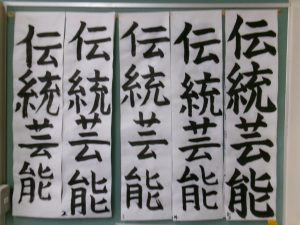 伝統芸能
伝統芸能
伝統芸能
伝統芸能
伝統芸能